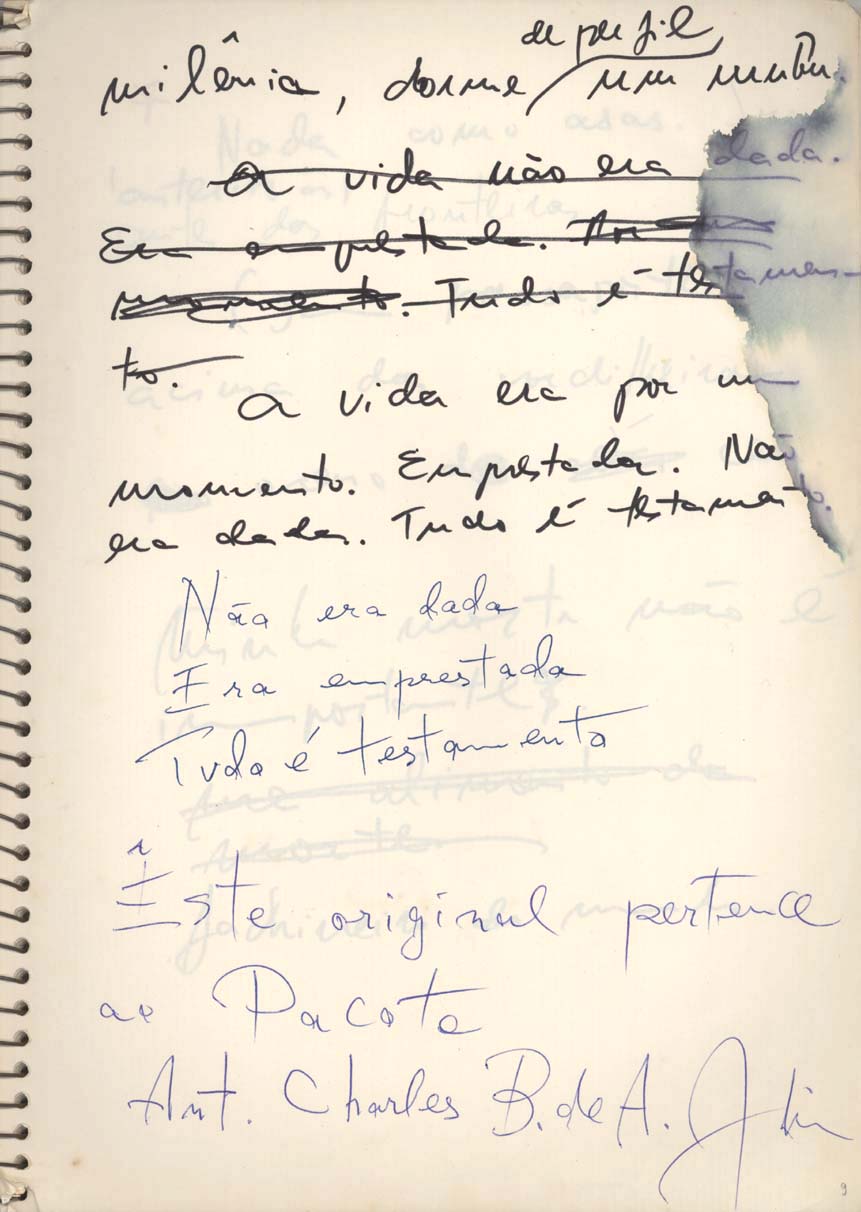 de perfil
milênia, dorme um
A vida não era dada.
Era emprestada. Por um
momento. Tudo é testamen-
to.
A vida era por um
momento. Emprestada. Não
era dada. Tudo é testamento.
Não era dada
Era emprestada
Tudo é testamento
Este original pertence
ao Pacote
Ant. Charles B. de A.
9